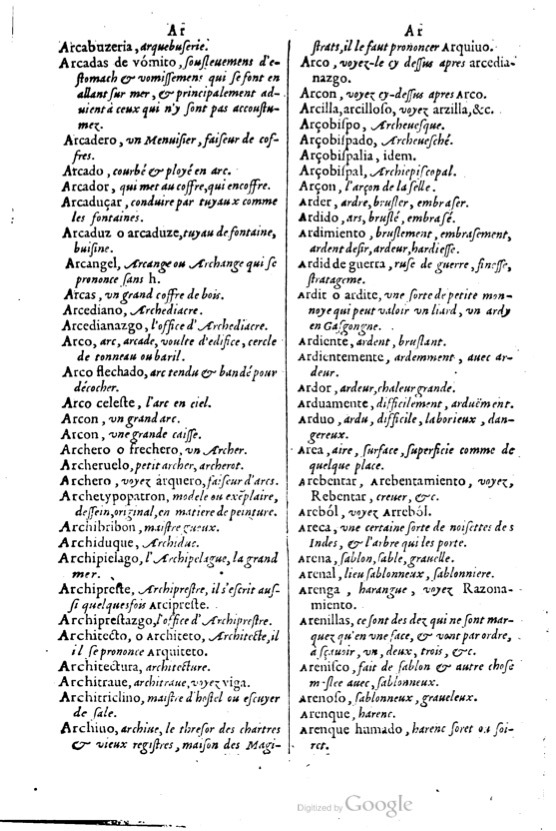 Ar
Arcabuzeria, arquebuserie.
Arcadas de vómito, sousleuemens d'e-
stomach & vomissemens qui se font en
allant sur mer, & principalement ad-
uient à ceux qui n'y sont pas accoustu-
mez.
Arcadero, un Menuisier, faiseur de cof-
fres.
Arcado, courbé & ployé en arc.
Arcador, qui met au coffre, qui encoffre.
Arcaduçar, conduire par tuyaux comme
les fontaines.
Arcaduz o arcaduze, tuyau de fontaine,
buisine.
Arcangel, Arcange ou Archange qui se
prononce sans h.
Arcas, un grand coffre de bois.
Arcediano, Archediacre.
Arcedianazgo, l'office d'Archediacre.
Arco, arc, arcade, voulte d'edifice, cercle
de tonneau ou baril.
Arco flechado, arc tendu & bandé pour
décocher.
Arco celeste, l'arc en ciel.
Arcon, un grand arc.
Arcon, une grande caisse.
Archero o frechero, un Archer.
Archeruelo, petit archer, archerot.
Archero, voyez árquero, faiseur d'arcs.
Archetypopatron, modele ou exẽplaire,
dessein, original, en matiere de peinture.
Archibribon, maistre gueux.
Archiduque, Archiduc.
Archipielago, l'Archipelague, la grand
mer.
Archipreste, Archiprestre, il s'escrit aus-
si quelquesfois Arcipreste.
Archiprestazgo, l'office d'Archiprestre.
Architecto, o Architeto, Architecte, il
il se prononce Arquiteto.
Architectura, architecture.
Architraue, architraue, voyez viga.
Architriclino, maistre d'hostel ou escuyer
de sale.
Archiuo, archiue, le thresor des chartres
& vieux registres, maison des Magi-
Ar
strats, il le faut prononcer Arquiuo.
Arco, voyez-le cy dessus apres arcedia-
nazgo.
Arcon, voyez cy-dessus apres Arco.
Arcilla, arcilloso, voyez arzilla, &c.
Arçobispo, Archeuesque.
Arçobispado, Archeuesché.
Arçobispalia, idem.
Arçobispal, Archiepiscopal.
Arçon, l'arçon de la selle.
Arder, ardre, brusler, embraser.
Ardido, ars, bruslé, embrasé.
Ardimiento, bruslement, embrasement,
ardent desir, ardeur, hardiesse.
Ardid de guerra, ruse de guerre, finesse,
stratageme.
Ardit o ardite, une sorte de petite mon-
noye qui peut valoir un liard, un ardy
en Gascongne.
Ardiente, ardent, bruslant.
Ardientemente, ardemment, auec ar-
deur.
Ardor, ardeur, chaleur grande.
Arduamente, difficilement, arduëment.
Arduo, ardu, difficile, laborieux, dan-
gereux.
Area, aire, surface, superficie comme de
quelque place.
Arebentar, Arebentamiento, voyez,
Rebentar, creuer, &c.
Areból, voyez Arreból.
Areca, une certaine sorte de noisettes des
Indes, & l'arbre qui les porte.
Arena, sablon, sable, grauelle.
Arenal, lieu sablonneux, sablonniere.
Arenga, harangue, voyez Razona-
miento.
Arenillas, ce sont des dez qui ne sont mar-
quez qu'en une face, & vont par ordre,
à sçauoir, un, deux, trois, &c.
Arenisco, fait de sablon & autre chose
meslee auec, sablonneux.
Arenoso, sablonneux, graueleux.
Arenque, harenc.
Arenque humado, harenc soret ou soi-
ret.
Digitized by Google